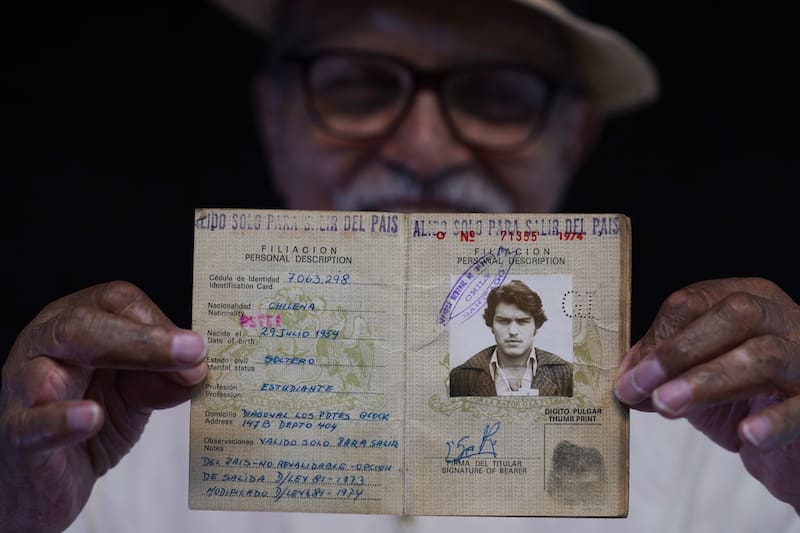 ALIDO SOLO PARA SALIR DEL PAIS
FILIACION
PERSONAL DESCRIPTION
Cédula de Identidad 7.063.298
Identification Card
Nacionalidad CHILENA
Nationality
Nacido el 29 JULIO 1954
Date of birth
Estado civil SOLTERO
Marital status
Profesión ESTUDIANTE
Profession
Domicilio DIAGONAL LOS PDTES BLOCK
Address 147B DEPTO 404
Observaciones VALIDO SOLO PARA SALIR
Notes
DEL PAIS-NO REVALIDABLE-OPCION
DE SALIDA D/LEY 81-1973
MODIFICADO D/LEY 681-1974
ALIDO SOLO PARA SALIR DEL PAIS
Nº 71355 1974
FILIACION
PERSONAL DESCRIPTION
CHILE
SANTIAGO
DIGITO PULGAR
THUMB PRINT
FIRMA DEL TITULAR
SIGNATURE OF BEARER